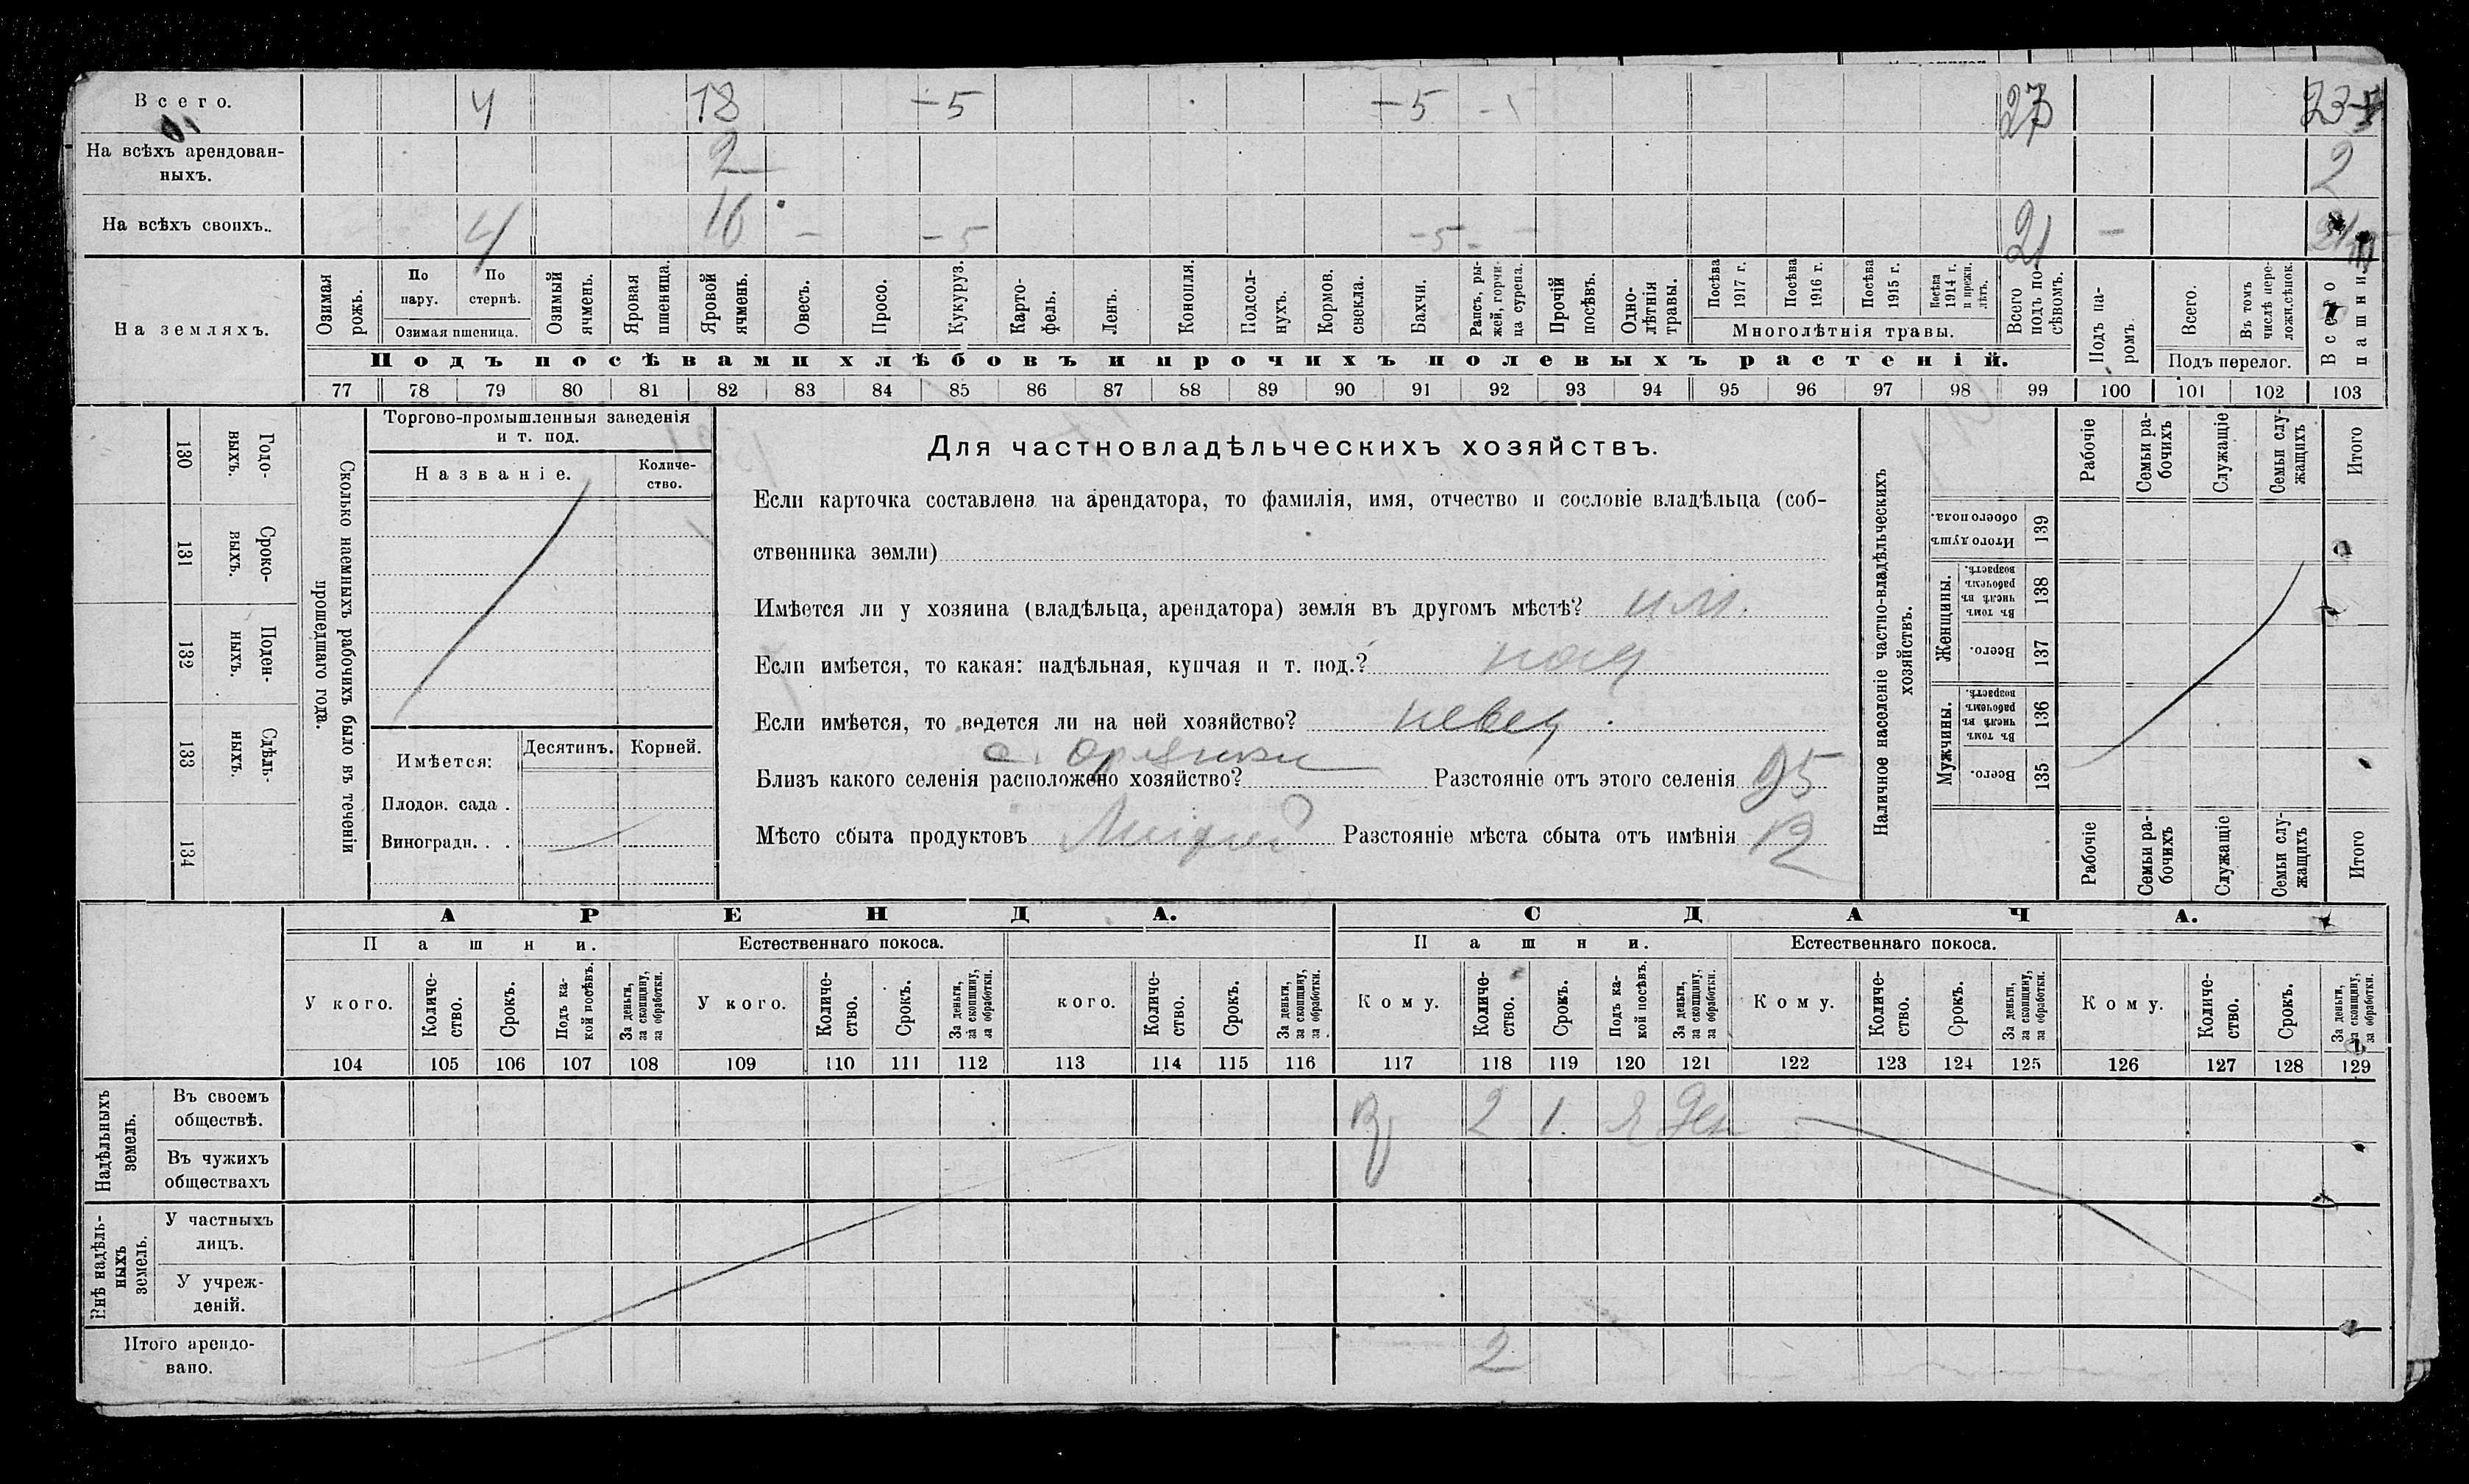 Всего. 4 18 -5 -5 23
На всѣхъ арендован-
ныхъ. 2 2
На всѣхъ своихъ.. 4 16 - -5 -5 - - 21 -
На земляхъ.
Озимая рожь.
По пару.
По стернѣ.
Озимая пшеница.
Озимый ячмень.
Яровая пшеница.
Яровой ячмень.
Овесъ.
Просо.
Кукуруз.
Карто-
фель.
Ленъ.
Конопля.
Подсол-
нухъ.
Кормов.
свекла.
Бахчи.
Рапсъ, ры-
жей, горчи-
ца сурепа.
Прочій
посѣвъ.
Одно-
лѣтнія
травы.
Посѣва
1917 г.
Посѣва
1916 г.
Посѣва
1915 г.
Посѣва
1914 г.
и прежн.
лѣтъ.
Многолѣтнія травы.
Всего
подъ по-
сѣвомъ.
Подъ па-
ромъ.
Всего.
Въ томъ
числѣ пере-
ложн.сѣнок.
Подъ перелог.
Всего
пашни.
Подъ посѣвами хлѣбовъ и прочихъ полевыхъ растеній.
77 78 79 80 81 82 83 84 85 86 87 88 89 90 91 92 93 94 95 96 97 98 99 100 101 102 103
130 Годо-
выхъ.
131 Сроко-
выхъ.
132 Поден-
ныхъ.
133 Сдѣль-
ныхъ.
134
Сколько наемныхъ рабочихъ было въ теченіи
прошедшаго года.
Торгово-промышленныя заведенія
и т. под.
Названіе.
Количе-
ство.
Имѣется:
Десятинъ. Корней.
Плодов. сада .
Виноградн. . .
Для частновладѣльческихъ хозяйствъ.
Если карточка составлена на арендатора, то фамилія, имя, отчество и сословіе владѣльца (соб-
ственника земли)
Имѣется ли у хозяина (владѣльца, арендатора) земля въ другомъ мѣстѣ? им.
Если имѣется, то какая: надѣльная, купчая и т. под.?
Если имѣется, то ведется ли на ней хозяйство?
Близъ какого селенія расположено хозяйство? Разстояніе отъ этого селенія 95
Мѣсто сбыта продуктовъ Разстояніе мѣста сбыта отъ имѣнія 12
Наличное населеніе частно-владѣльческихъ
хозяйствъ.
Рабочіе
Семьи ра-
бочихъ
Служащіе
Семьи слу-
жащихъ
Итого
Итого душъ
обоего пола.
139
Женщины.
Въ томъ
числѣ въ
рабочемъ
возрастѣ.
138
Всего.
137
Мужчины.
Въ томъ
числѣ въ
рабочемъ
возрастѣ.
136
Всего.
135
Рабочіе
Семьи ра-
бочихъ
Служащіе
Семьи слу-
жащихъ
Итого
АРЕНДА. СДАЧА.
Пашни. Естественнаго покоса. Пашни. Естественнаго покоса.
У кого.
Количе-
ство.
Срокъ.
Подъ ка-
кой посѣвъ.
За деньги,
за скопщину,
за обработки.
У кого.
Количе-
ство.
Срокъ.
За деньги,
за скопщину,
за обработки.
кого.
Количе-
ство.
Срокъ.
За деньги,
за скопщину,
за обработки.
Кому.
Количе-
ство.
Срокъ.
Подъ ка-
кой посѣвъ.
За деньги,
за скопщину,
за обработки.
Кому.
Количе-
ство.
Срокъ.
За деньги,
за скопщину,
за обработки.
Кому.
Количе-
ство.
Срокъ.
За деньги,
за скопщину,
за обработки.
104 105 106 107 108 109 110 111 112 113 114 115 116 117 118 119 120 121 122 123 124 125 126 127 128 129
Надѣльныхъ
земель.
Въ своемъ
обществѣ. 2 1. Я Ден
Въ чужихъ
обществахъ
Внѣ надѣль-
ныхъ
земель.
У частныхъ
лицъ.
У учреж-
деній.
Итого арендо-
вано. 2